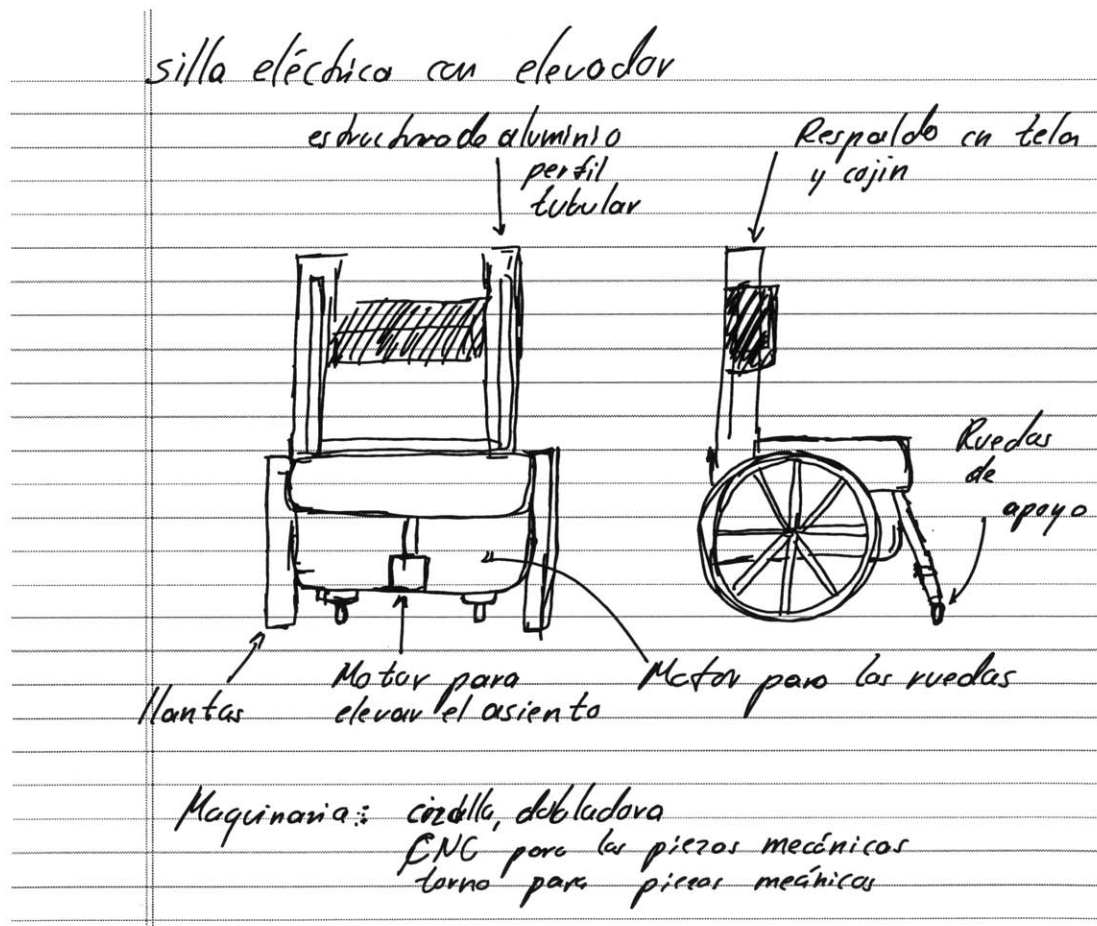 silla eléctrica con elevador
estructura de aluminio
perfil
tubular
Respaldo en tela
y cojin
Ruedas
de
apoyo
llantas
Motor para
elevar el asiento
Motor para las ruedas
Maquinaria: cizalla, dobladora
CNC para las piezas mecánicas
torno para piezas meánicas